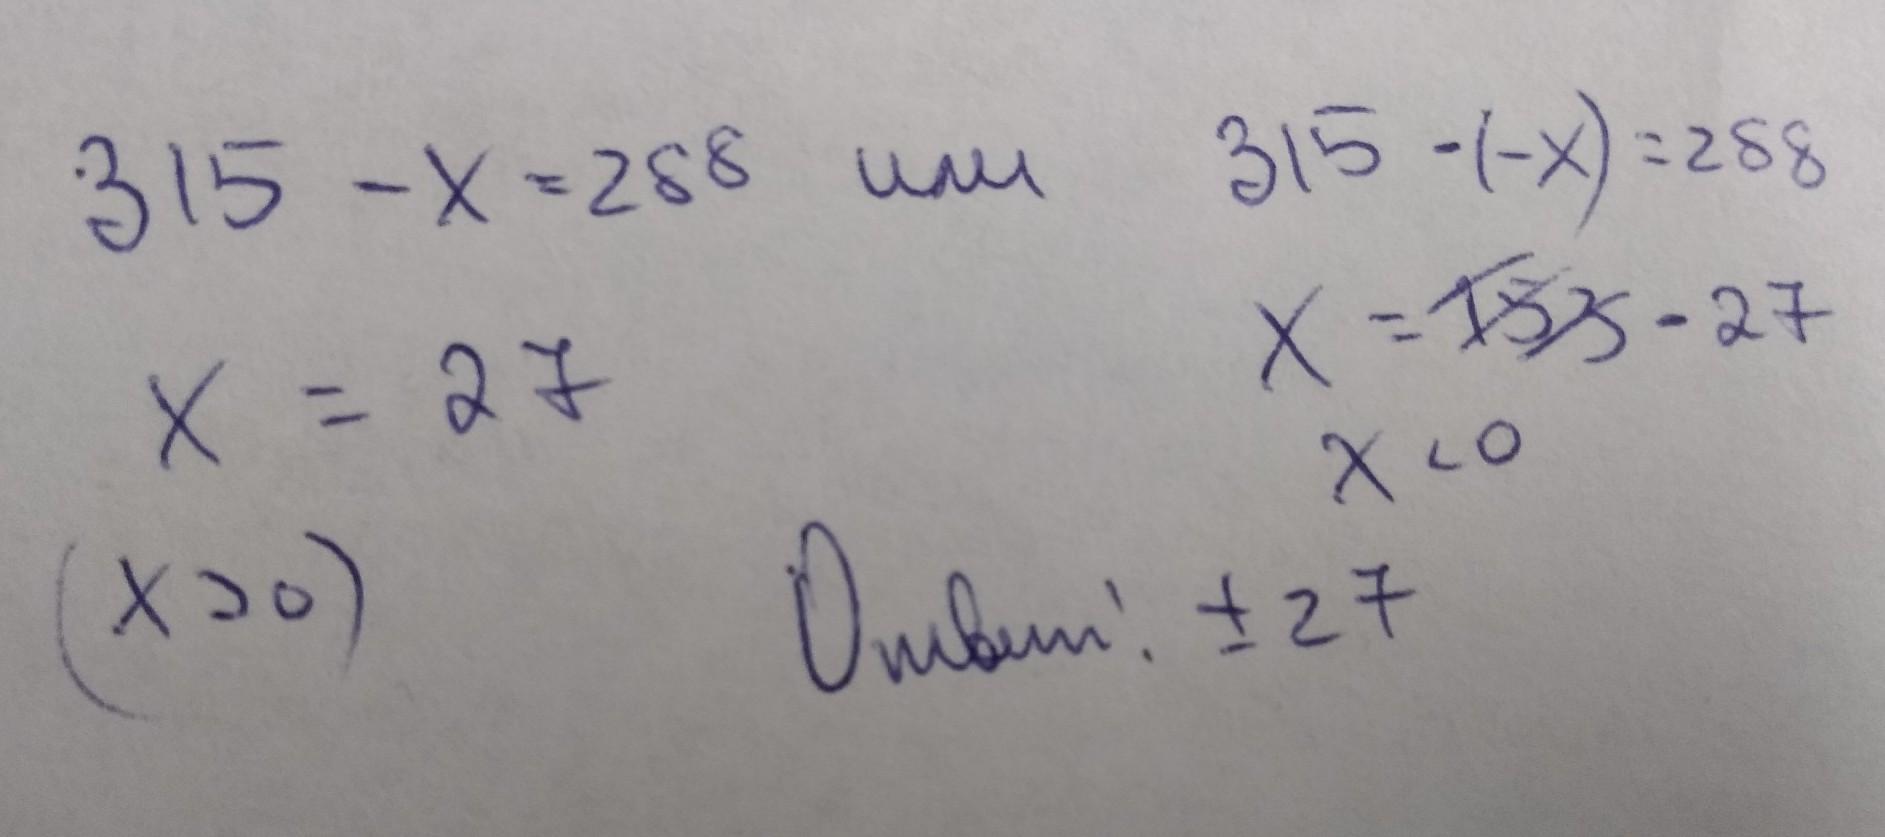 315 - x = 288 или 315 - (-x) = 288
x = 27 x = - 27
(x > 0) x < 0
Ответ: ± 27